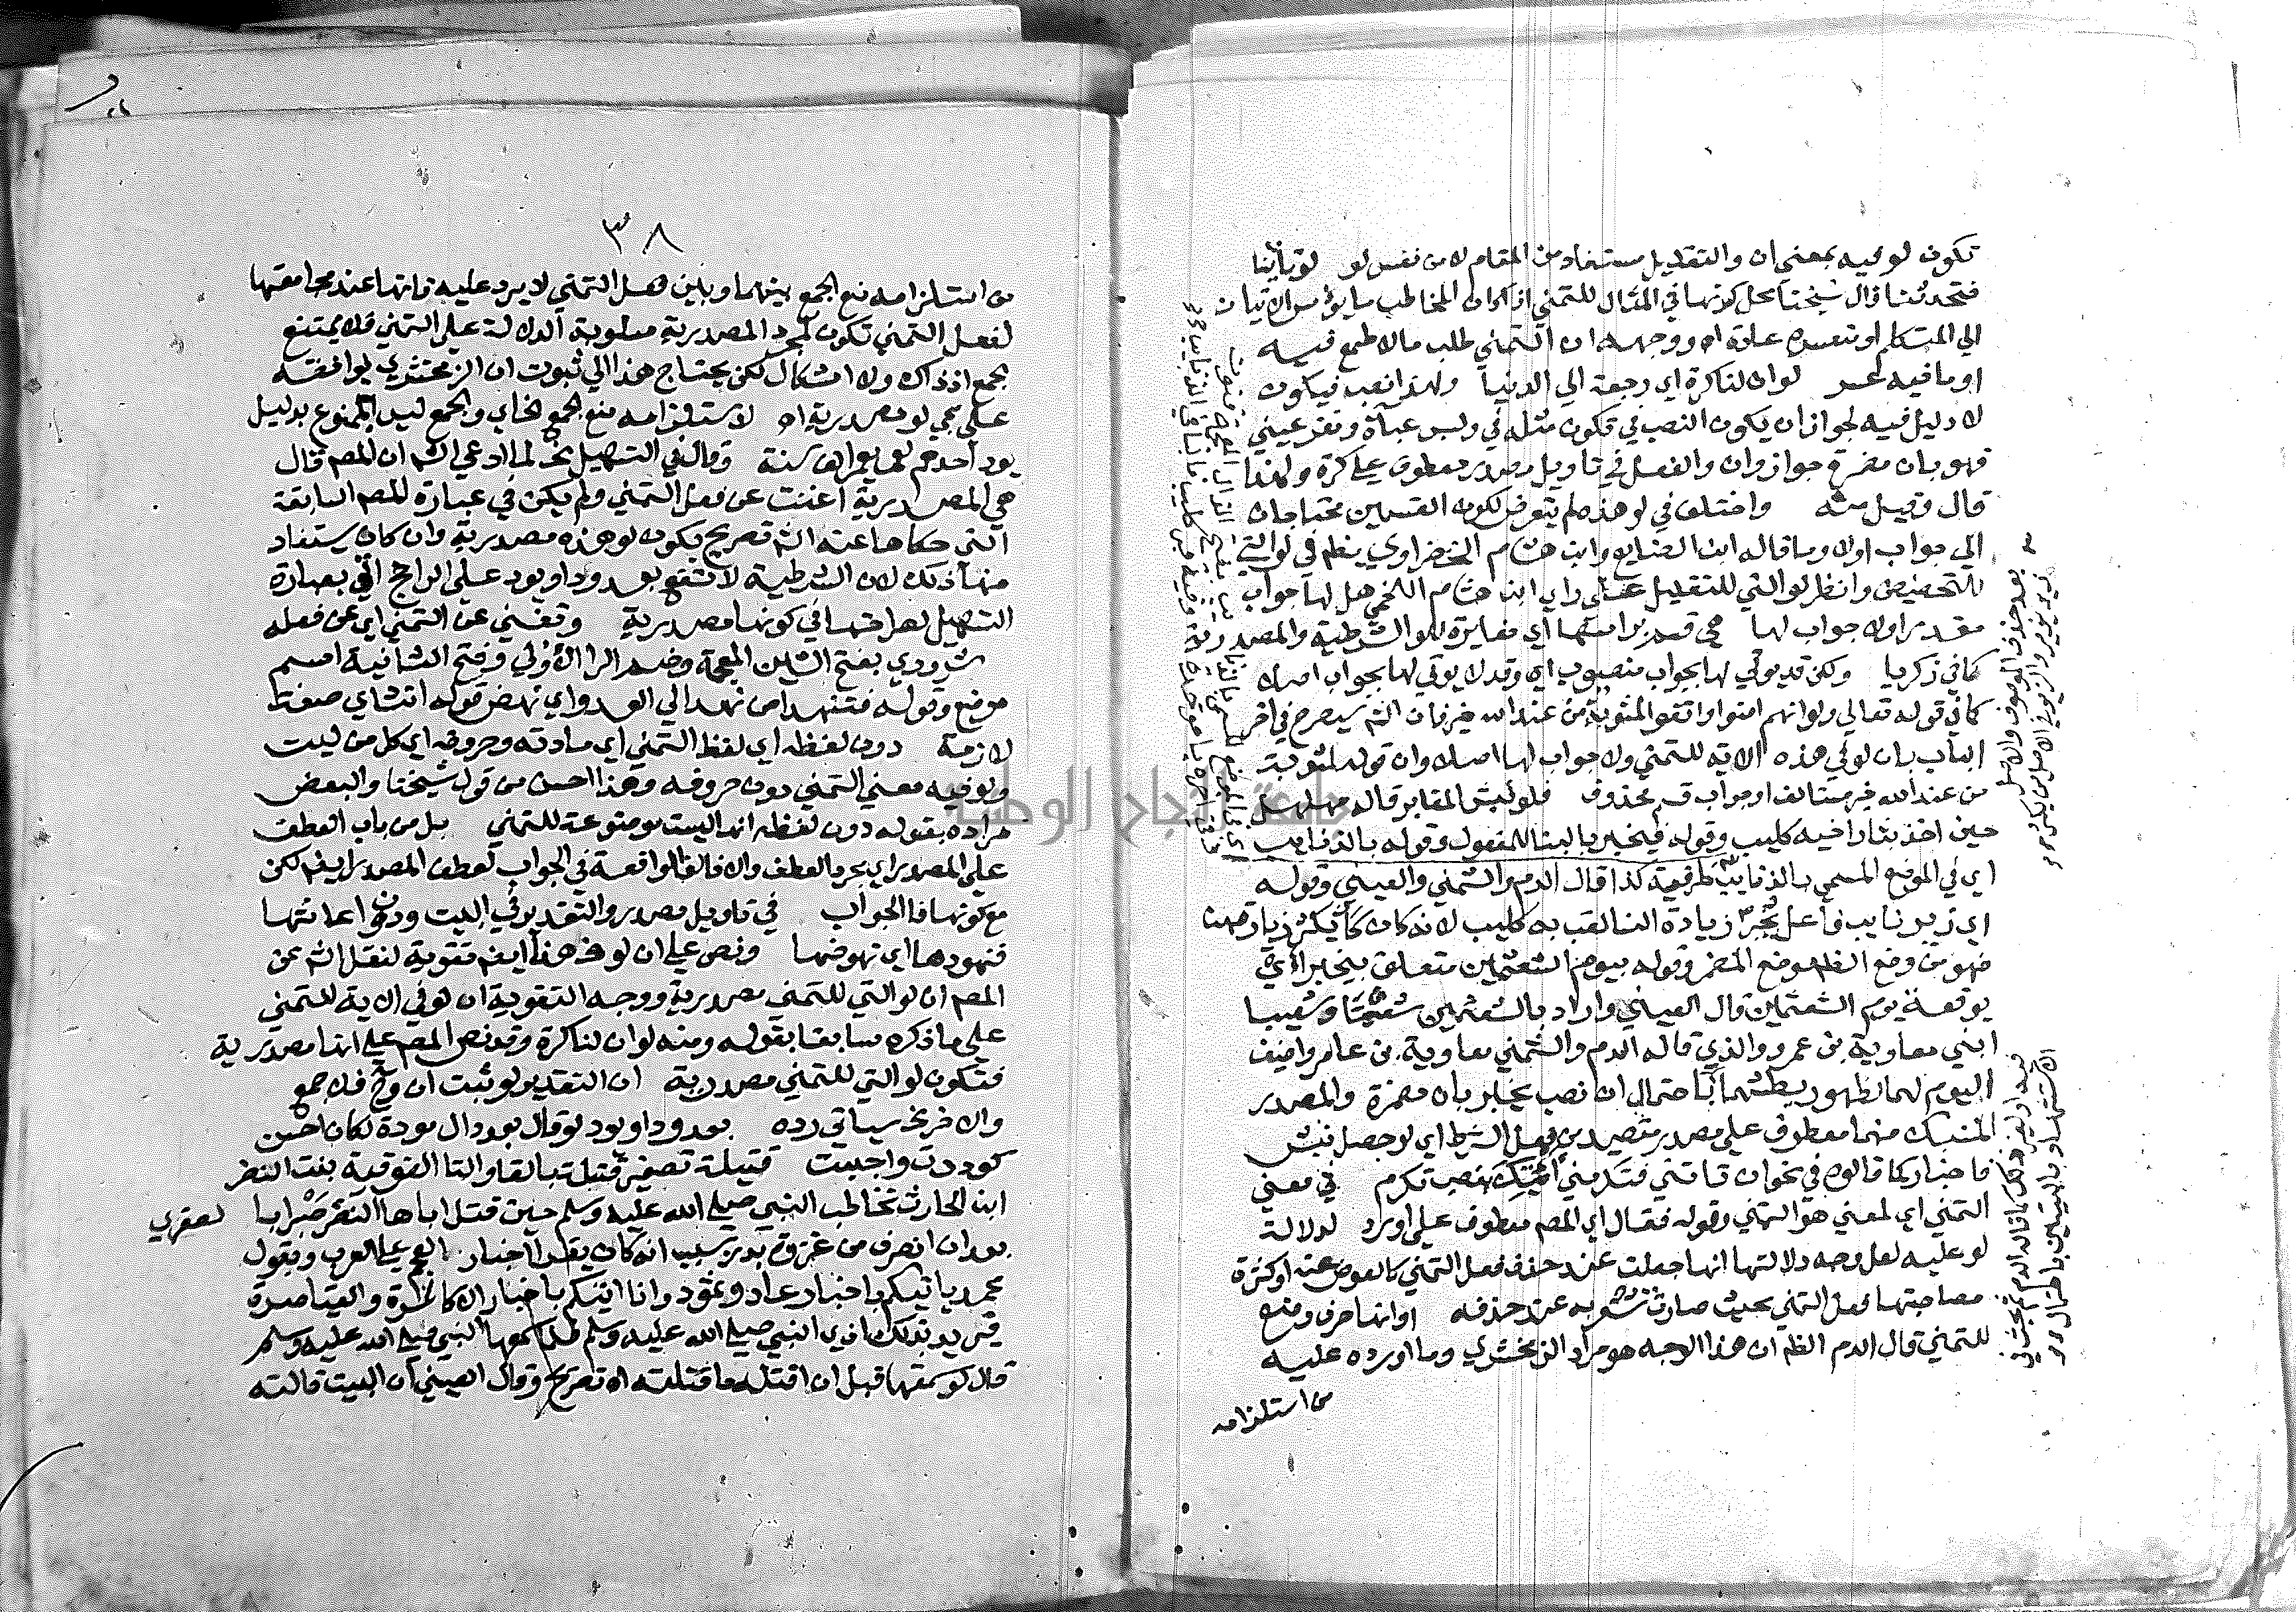 تكون لو فيه بمعني ان والتقليل مستفاد من المقام لا من نفس لو لو تأتينا
فتحدثنا قال شيخنا محل كونها في المثال للتمني اذا كان المخاطب مايوسا من الاتيان
الي المتكلم او تعسره عادة اه ووجهه ان التمني طلب ما لا طمع فيه
او ما فيه عسر لو ان لنا كرة اي رجعة الي الدنيا ولهذا نصب فيكون
لا دليل فيه لجواز ان يكون النصب في فتكون مثله في ولبس عباة وتقر عيني
فهو بان مضمرة جوازا وان والفعل في تاويل مصدر معطوف علي كرة ولهذا
قال وقيل منه واختلف في لو هذه لم يتعرض لكون القسمين محتاجان
الي جواب اولا وما قاله ابن الضايع وابن هشام الخضراوي ينظم في لو التي
للتحضيض وانظر لو التي للتقليل علي راي ابن هشام اللخمي هل لها جواب
مقدر اولا جواب لها هي قسم براسها اي مغايرة للو الشرطية والمصدرية
كما في زكريا ولكن قد يوتي لها بجواب منصوب اي وقد لا يوتي لها بجواب اصلا
كما في قوله تعالي ولو انهم امنوا واتقوا لمثوبة من عند الله خير فان الشم سيصرح في اخر
الباب بان لو في هذه الاية للتمني ولا جواب لها اصلا وان قوله لمثوبة
من عند الله خير مستانف او جواب قسم محذوف فلو نبش المقابر قاله مهلهل
حين اخذ بثار اخيه كليب وقوله فيخبر بالبنا للمفعول وقوله بالذنايب
اي في الموضع المسمي بالذنايب ظرفية كذا قال الدم والشمني والعيني وقوله
اي زير نايب فاعل يخبر زيادة النسا لقب به كليب لانه كان يكثر زيارتهن
فهو من وضع الظاهر موضع المضمر وقوله بيوم الشعثمين متعلق بيخبر اي
بوقعة يوم الشعثمين قال العيني واراد بالشعثمين شعثما وشعيبا
ابني معاوية بن عمرو والذي قاله الدم والشمني معاوية بن عامر واضيف
اليوم لهما لظهور بطشهما احتمال ان نصب يخبر بان مضمرة والمصدر
المنسبك منهما معطوف علي مصدر متصيد من فعل الشرط اي لو حصل نبش
فاخبار كما قالوه في نحو ان تاتني فتكرمني اتيتك بنصب تكرم في معني
التمني اي لمعني هو التمني وقوله فقال اي المصم معطوف علي اورد لدلالة
لو عليه لعل وجه دلالتها انها جعلت عند حذف فعل التمني كالعوض عنه او كثرة
مصاحبتها لفعل التمني بحيث صارت تشعر به عند حذفه او انها حرف وضع
للتمني قال الدم الظم ان هذا الوجه هو مراد الزمخشري وما اورده عليه
من استلزامه
٣٨
من استلزامه منع الجمع بينهما وبين فعل التمني لا يرد عليه فانها عند مجامعتها
لفعل التمني تكون لمجرد المصدرية مسلوبة الدلالة علي التمني فلا يمتنع
الجمع اذ ذاك ولا اشكال لكن يحتاج هذا الي ثبوت ان الزمخشري يوافقه
علي مجي لو مصدرية اه لاستلزامه منع الجمع الخ اي والجمع ليس بممنوع بدليل
يود احدهم لو يعمر الف سنة وقال في التسهيل الخ لما ادعي الشم ان المصم قال
هي المصدرية اغنت عن فعل التمني ولم يكن في عبارة المصم السابقة
التي حكاها عنه الشم تصريح بكون لو هذه مصدرية وان كان يستفاد
منها ذلك لان الشرطية لا تقع بعد ود او يود علي الراجح اتي بعبارة
التسهيل لصراحتها في كونها مصدرية وتغني عن التمني اي عن فعله
شروري بفتح الشين المعجمة وضم الرا الاولي وفتح الثانية اسم
موضع وقوله فتنهد اس نهد الي العدو اي نهض قوله انشاي صفة
لازمة دون لفظه اي لفظ التمني اي مادته وحروفه اي كل من ليت
ولو فيه معني التمني دون حروفه وهذا احسن من قول شيخنا والبعض
مراده بقوله دون لفظه انها ليست موضوعة للتمني بل من باب العطف
علي المصدر اي بحرف العطف والا فالفا الواقعة في الجواب لعطف المصدر ايضم لكن
مع كونها فا الجواب في تاويل مصدر والتقدير في البيت وددنا اعانتها
فنهودها اي نهوضها ونص علي ان لو في هذا ايضم تقوية لنقل الشم عن
المصم ان لو التي للتمني مصدرية ووجه التقوية ان لو في الاية للتمني
علي ما ذكره سابقا بقوله ومنه لو ان لنا كرة وقد نص المصم علي انها مصدرية
فتكون لو التي للتمني مصدرية ان التقدير لو ثبت ان وح فلا جمع
والاخر يخ سياتي رده بعد ود او يود لو قال بعد دال مودة لكان احسن
كوددت واحببت قتيلة تصغير قتلة بالقاف والتا الفوقية بنت النضر
ابن الحارث تخاطب النبي صلي الله عليه وسلم حين قتل اباها النضر صبرا بالصفري
بعد ان انصرف من غزوة بدر بسبب انه كان يقرا اخبار العجم علي العرب ويقول
محمد ياتيكم باخبار عاد وثمود وانا اتيكم باخبار الاكاسرة والقياصرة
يريد بذلك اذي النبي صلي الله عليه وسلم فلما سمعها النبي صلي الله عليه وسلم
قال لو سمعتها قبل ان اقتله ما قتلته اه تصريح وقال العيني ان البيت قالته
جامعة النجاح الوطنية